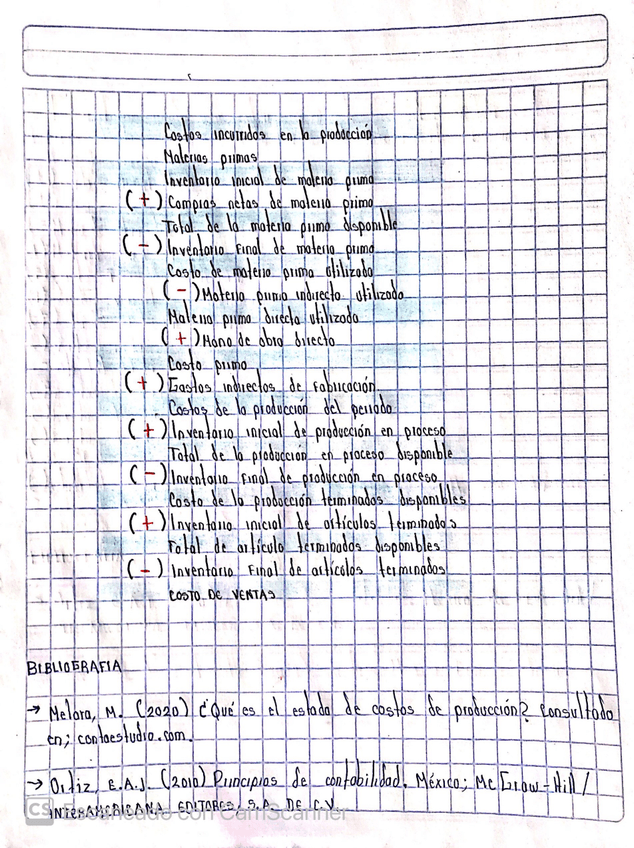 Costos incurridos en la producción
Materias primas
Inventario inicial de materia prima
(+) Compras netas de materia prima
Total de la materia prima disponible
(-) Inventario Final de materia prima
Costo de materia prima utilizada
(-) Materia prima indirecta utilizada
Materia prima directa utilizada
(+) Mano de obra directa
Costo primo
(+) Gastos indirectos de Fabricación
Costos de la producción del periodo
(+) Inventario inicial de producción en proceso
Total de la producción en proceso disponible
(-) Inventario Final de producción en proceso
Costo de la producción terminados disponibles
(+) Inventario inicial de artículos terminados
Total de artículo terminados disponibles
(-) Inventario Final de artículos terminados
COSTO DE VENTAS
BIBLIOGRAFIA
→ Melara, M. (2020) ¿Qué es el estado de costos de producción? Consultado
en; contaestudio.com.
→ Ortiz, E.A.J. (2010) Principios de contabilidad. México; Mc Graw-Hill/
INTERAMERICANA EDITORES, S.A. DE C.V.
CS Escaneado con CamScanner